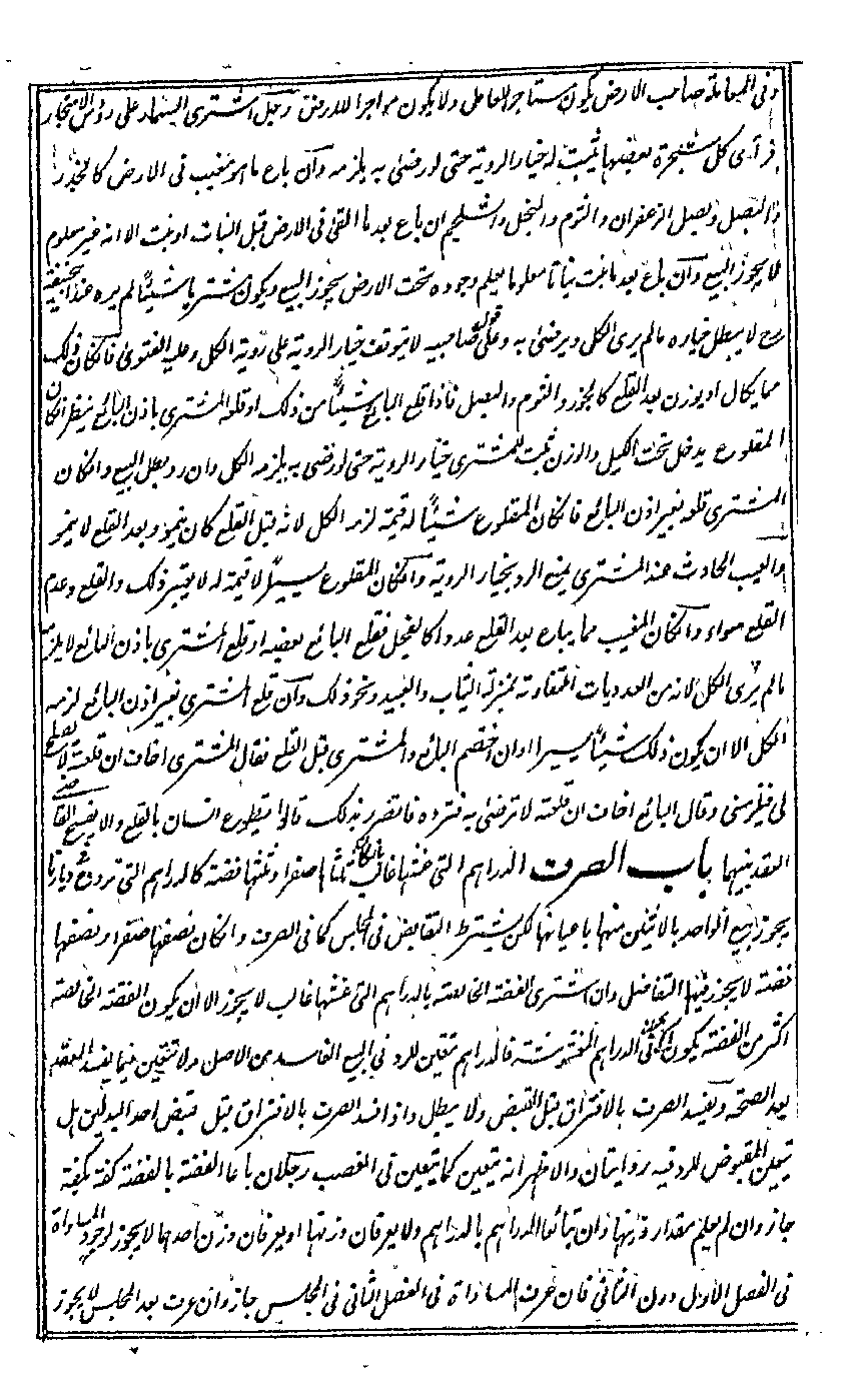 وفى المعاملة صاحب الارض يكون مستاجرا للعامل ولا يكون مواجرا للارض رجل اشترى الثمار على رؤس الاشجار
فرأى كل شجرة بعضها يثبت له خيار الروية حتى لو رضى به يلزمه وان باع ما هو مغيب فى الارض كالجزر
والبصل وبصل الزعفران والثوم والفجل والشلجم ان باع بعد ما القى فى الارض قبل النبات او نبت الا انه غير معلوم
لا يجوز البيع وان باع بعد ما نبت نباتا معلوما يعلم وجوده تحت الارض يجوز البيع ويكون مشتريا شيئا لم يره عند ابيحنيفة
رح لا يبطل خياره ما لم يرى الكل ويرضى به وعلى قول صاحبيه لا يتوقف خيار الروية على رؤية الكل وعليه الفتوى فان كان ذلك
مما يكال او يوزن بعد القلع كالجزر والثوم والبصل فاذا قلع البائع شيئا من ذلك او قلعه المشترى باذن البائع ينظر ان كان
المقلوع يدخل تحت الكيل والوزن ثبت للمشترى خيار الروية حتى لو رضى به يلزمه الكل وان رد بطل البيع وان كان
المشترى قلعه بغير اذن البائع فان كان المقلوع شيئا له قيمة لزمه الكل لانه قبل القلع كان ينمو وبعد القلع لا ينمو
والعيب الحادث عند المشترى يمنع الرد بخيار الروية وان كان المقلوع يسيرا لا قيمة له لا يعتبر ذلك والقلع وعدم
القلع سواء وان كان المغيب مما يباع بعد القلع عددا كالفجل فقلع البائع بعضه او قلع المشترى باذن البائع لا يلزمه
ما لم يرى الكل لانه من العدديات المتفاوتة بمنزلة الثياب والعبيد ونحو ذلك وان قلع المشترى بغير اذن البائع لزمه
الكل الا ان يكون ذلك شيئا يسيرا وان اختصم البائع والمشترى قبل القلع فقال المشترى اخاف ان قلعته لا يصلح
لى فيلزمنى وقال البائع اخاف ان قلعته لا ترضى به فترده فاتضرر بذلك قالوا يتطوع انسان بالقلع والا يفسخ القاضى
العقد بينهما باب الصرف الدراهم التى غشها غالب بان كان ثلثاها صفرا وثلثها فضة كالدراهم التى تروج فى ديارنا
يجوز بيع الواحد بالاثنين منها باعيانها لكن يشترط التقابض فى المجلس كما فى الصرف وان كان نصفها صفرا ونصفها
فضة لا يجوز فيها التفاضل وان اشترى الفضة الخالصة بالدراهم التى غشها غالب لا يجوز الا ان يكون الفضة الخالصة
اكثر من الفضة يكون فى الدراهم المغشوشة فالدراهم تتعين للرد فى البيع الفاسد من الاصل ولا تتعين فيما يفسد العقد
بعد الصحة ويفسد الصرف بالافتراق قبل القبض ولا يبطل واذا فسد الصرف بالافتراق قبل قبض احد البدلين هل
يتعين المقبوض للرد فيه روايتان والاظهر انه يتعين كما يتعين فى الغصب رجلان باعا الفضة بالفضة كفة بكفة
جاز وان لم يعلم مقدار وزنها وان تبائعا الدراهم بالدراهم ولا يعرفان وزنها او يعرفان وزن احدهما لا يجوز لوجود المساواة
فى الفصل الاول دون الثانى فان عرف المساواة فى الفصل الثانى فى المجلس جاز وان عرف بعد المجلس لا يجوز